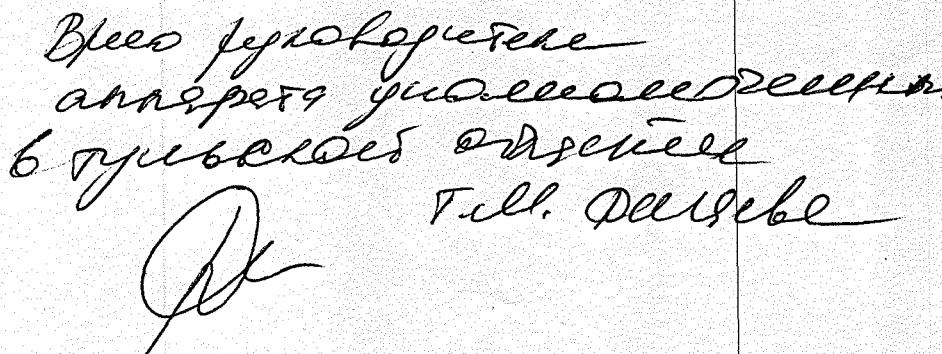 Врио руководителя
аппарата уполномоченных
в Тульской области
Т.М.